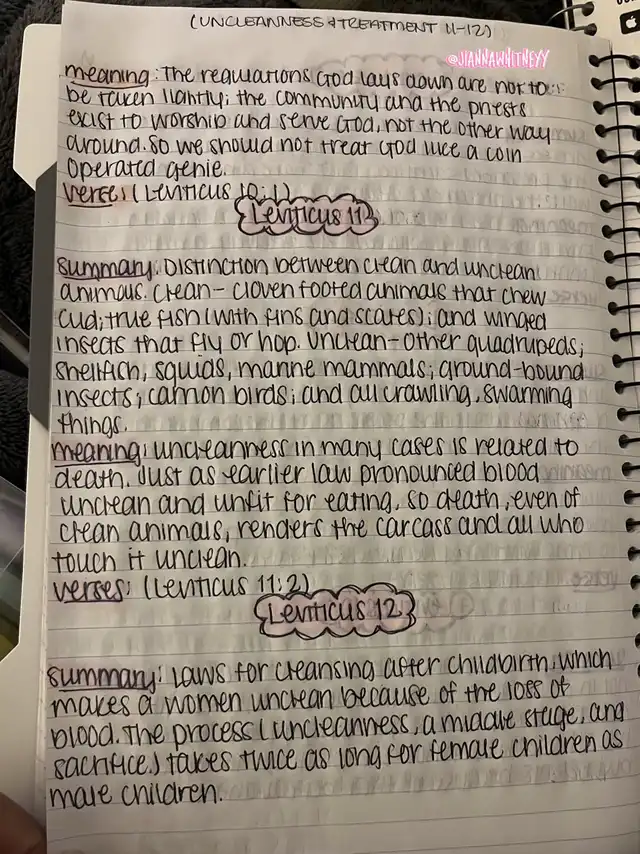 (UNCLEANNESS & TREATMENT 11-12)
@JIANNAWHITNEYY
meaning: The regulations God lays down are not to
be taken lightly; the community and the priests
exist to worship and serve God, not the other way
around. So we should not treat God like a coin
operated genie.
verse: (Leviticus 10:1)
Leviticus 11
summary: Distinction between clean and unclean
animals. Clean- cloven footed animals that chew
cud; true fish (with fins and scales); and winged
insects that fly or hop. Unclean- other quadrupeds;
shellfish, squids, marine mammals; ground-bound
insects; carrion birds; and all crawling, swarming
things.
meaning: uncleanness in many cases is related to
death. Just as earlier law pronounced blood
unclean and unfit for eating, so death, even of
clean animals, renders the carcass and all who
touch it unclean.
verses: (Leviticus 11:2)
Leviticus 12
summary: Laws for cleansing after childbirth, which
makes a women unclean because of the loss of
blood. The process (uncleanness, a middle stage, and
sacrifice) takes twice as long for female children as
male children.